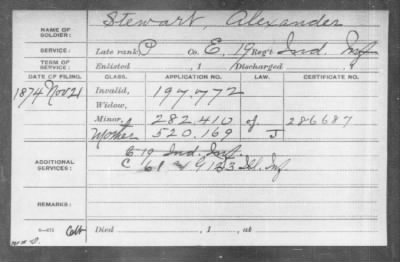 NAME OF SOLDIER: Stewart, Alexander
SERVICE: Late rank, P Co. E, 19 Reg't Ind. Inf.
TERM OF SERVICE: Enlisted , 1 Discharged , 1
DATE OF FILING. CLASS. APPLICATION NO. LAW. CERTIFICATE NO.
1874 Nov 21 Invalid, 197.772
Widow,
Minor, 282.410 of 286687
Mother 520.169 J
ADDITIONAL SERVICES: E 19 Ind. Inf.
C 61 & 9 Ill. Inf.
REMARKS:
Died , 1 , at